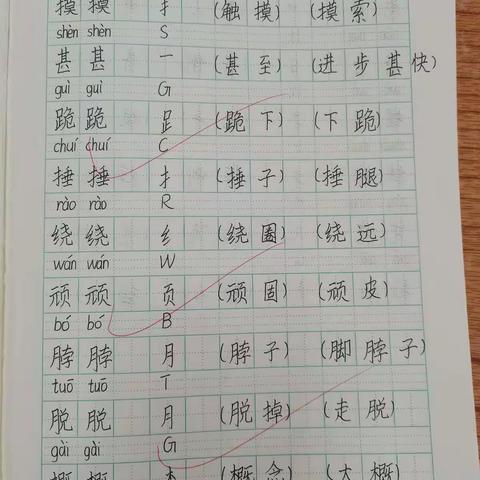 摸 摸 扌 (触 摸) (摸 索)
shèn shèn S
甚 甚 一 (甚 至) (进 步 甚 快)
guì guì G
跪 跪 𧾷 (跪 下) (下 跪)
chuí chuí C
捶 捶 扌 (捶 子) (捶 腿)
rào rào R
绕 绕 纟 (绕 圈) (绕 远)
wán wán W
顽 顽 页 (顽 固) (顽 皮)
bó bó B
脖 脖 月 (脖 子) (脚 脖 子)
tuō tuō T
脱 脱 月 (脱 掉) (走 脱)
gài gài G
概 概 木 (概 念) (大 概)